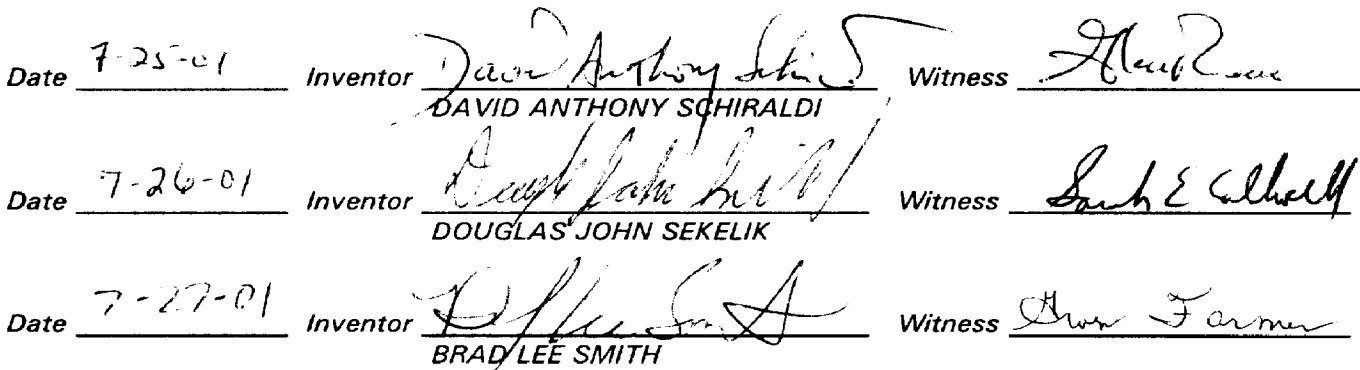 Date 7-25-01 Inventor David Anthony Schiraldi Witness
DAVID ANTHONY SCHIRALDI
Date 7-26-01 Inventor Douglas John Sekelik Witness Sarah E
DOUGLAS JOHN SEKELIK
Date 7-27-01 Inventor Brad Lee Smith Witness Gwen Farmer
BRAD LEE SMITH